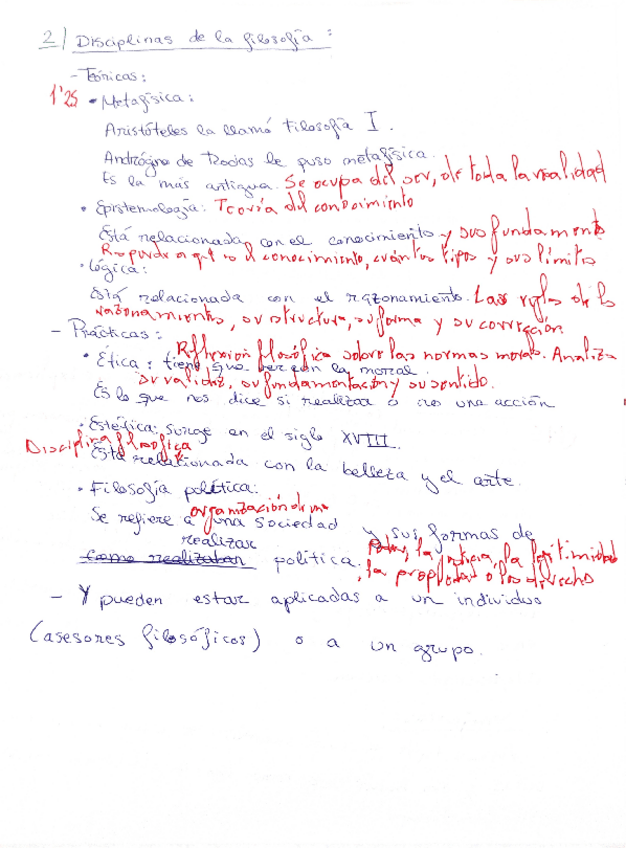 2) Disciplinas de la filosofía :
- Teóricas :
1'25 • Metafísica :
Aristóteles la llamó Filosofía I.
Andrógino de Rodas le puso metafísica.
Es la más antigua. Se ocupa del ser, de toda la realidad
• Epistemología: Teoría del conocimiento
Está relacionada con el conocimiento y sus fundamento
Responde a qué es el conocimiento, cuántos tipos y sus límites
• Lógica :
Está relacionada con el razonamiento. Las reglas de los
razonamientos, su estructura, su forma y su corrección.
- Prácticas :
Reflexión filosófica sobre las normas morales. Analiza
• Ética : tiene que ver con la moral.
su validez, su fundamentación y su sentido.
Es lo que nos dice si realizar o no una acción
• Estética: surge en el siglo XVIII.
Disciplina filosófica
Está relacionada con la belleza y el arte.
• Filosofía política:
organización de una
Se refiere a una sociedad y sus formas de
realizar
como realizaban política. Poder, la justicia, la legitimidad
, la propiedad o los derechos
- Y pueden estar aplicadas a un individuo
(asesores filosóficos) o a un grupo.